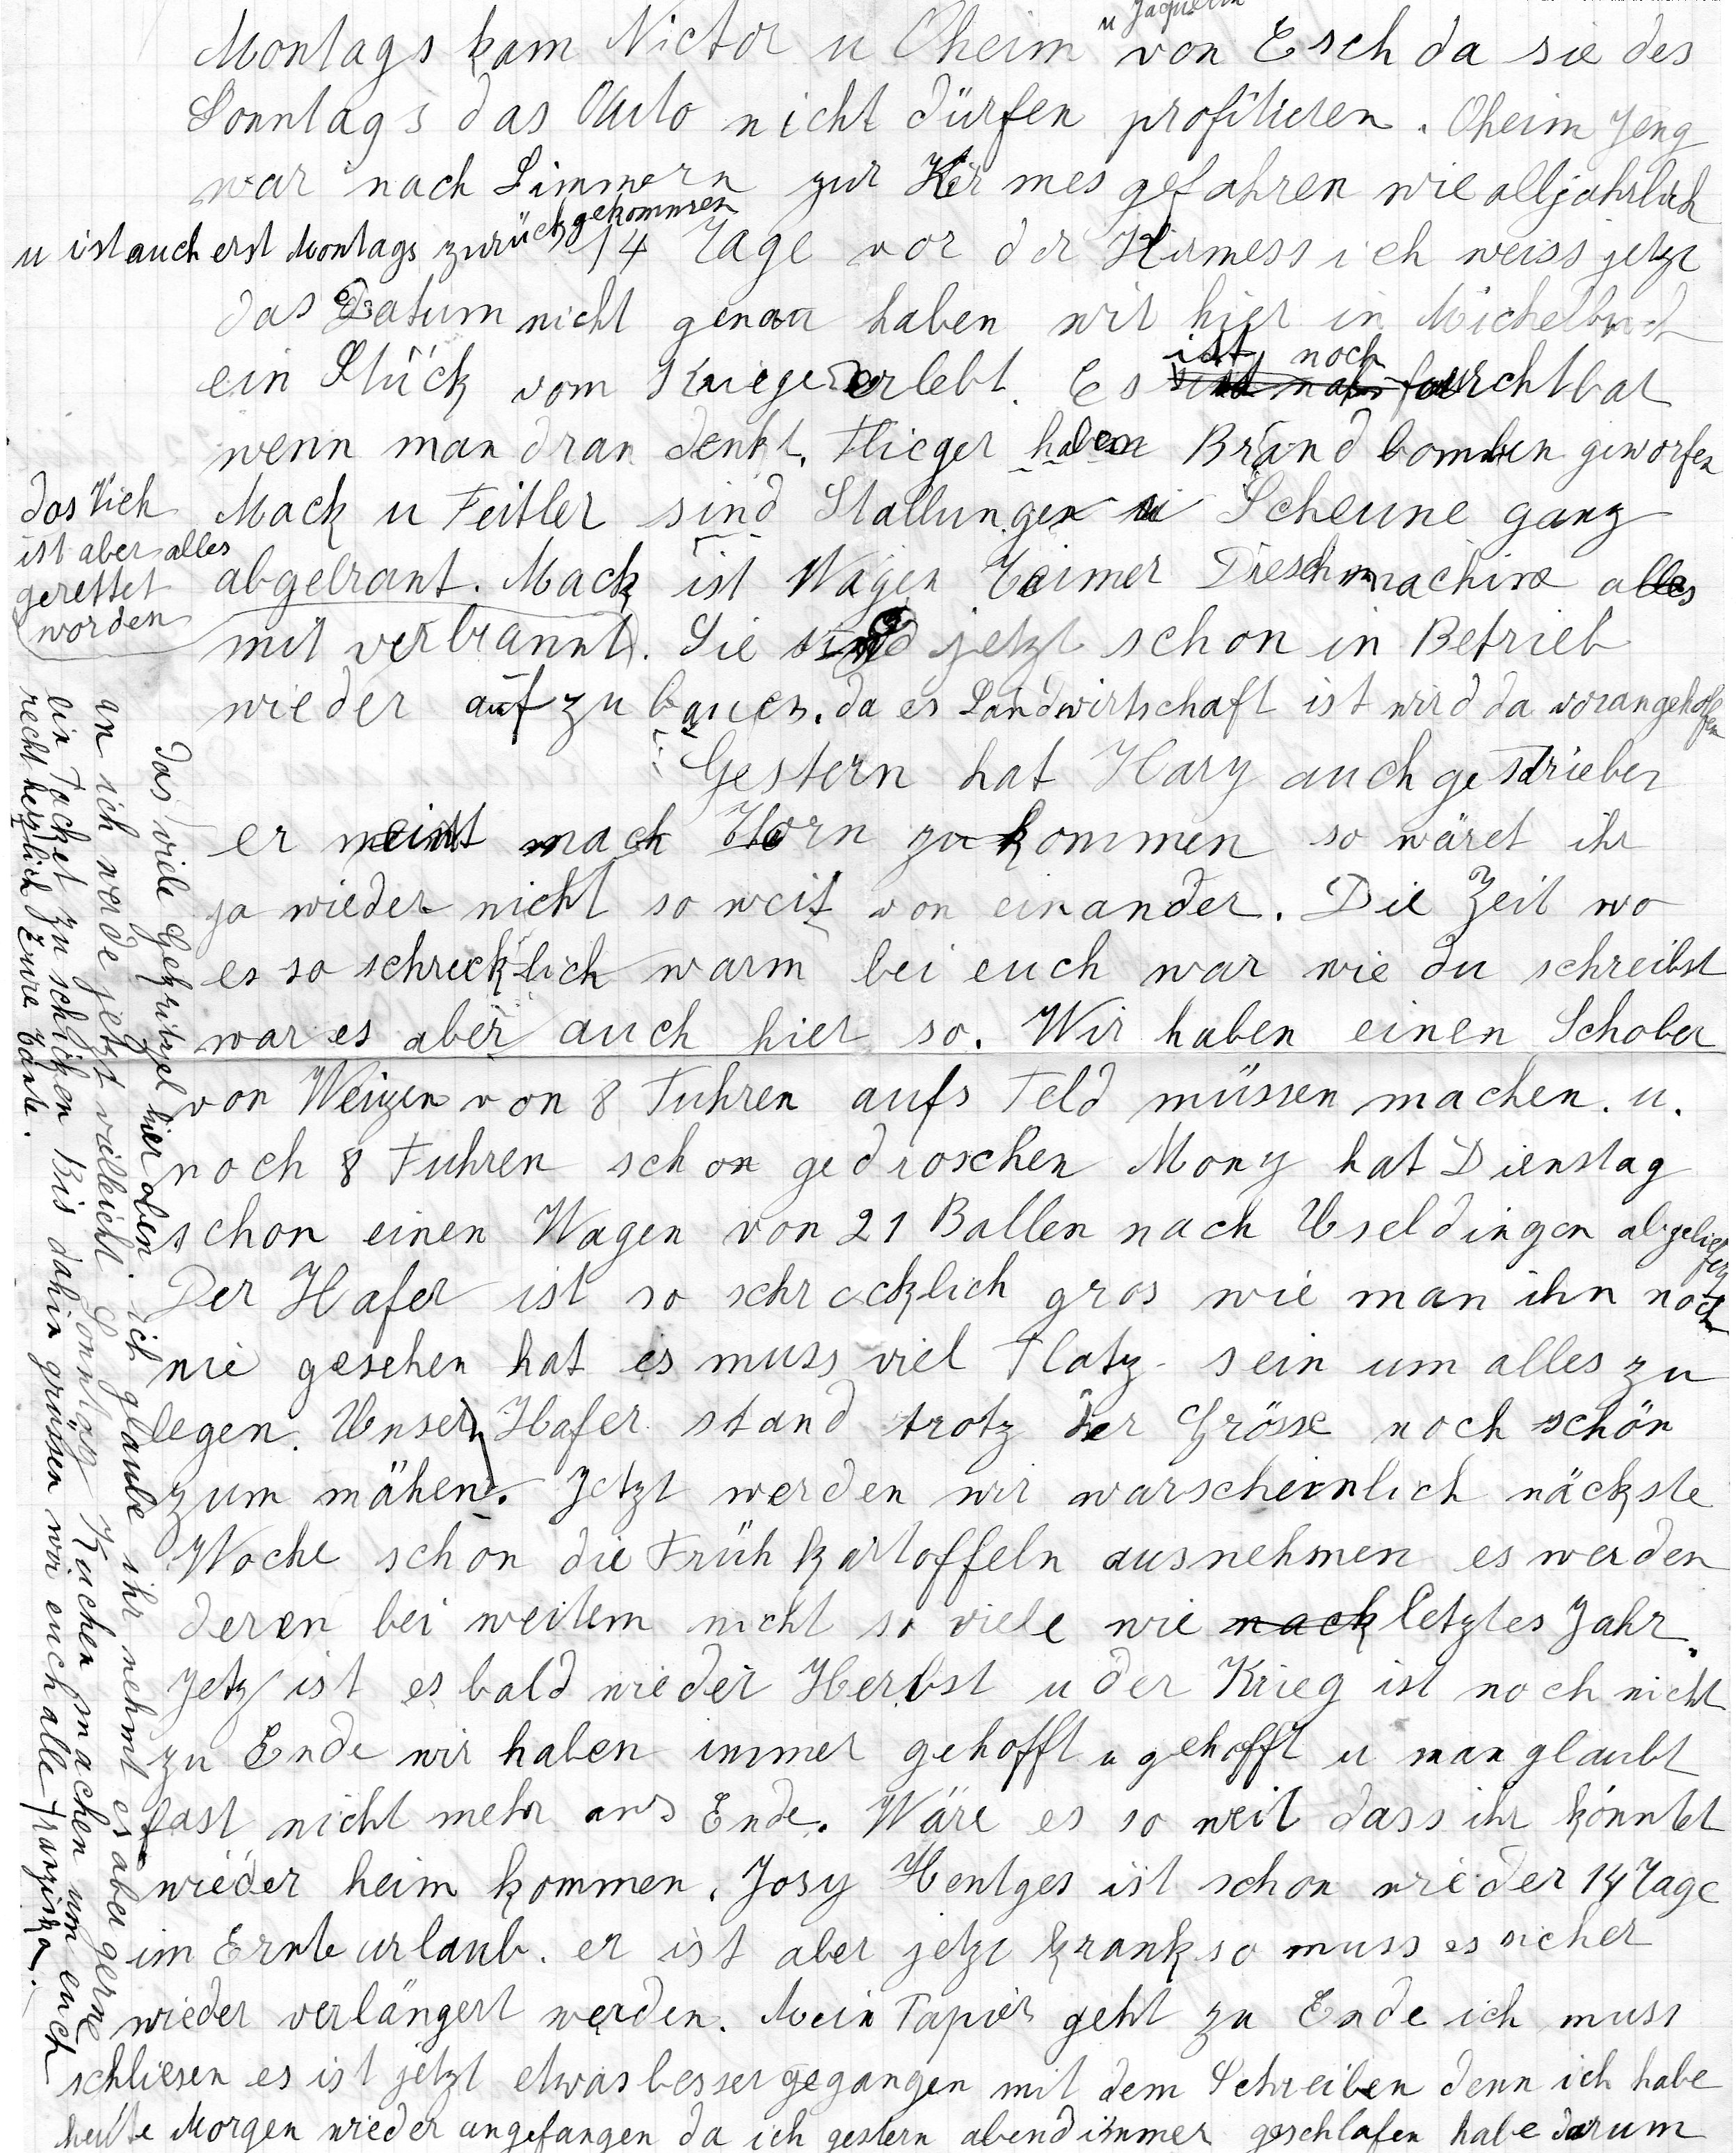 u Jaquelin
Montags kam Victor u Oheim von Esch da sie des
Sonntags das Auto nicht dürfen profitieren. Oheim Jeng
war nach Simmern zur Kirmes gefahren wie alljahrlich
u ist auch erst Montags zurückgekommen 14 Tage vor der Kirmess ich weiss jetzt
das Datum nicht genau haben wir hier in Michelbuch
ein Stück vom Kriege erlebt. Es ist noch furchtbar
wenn man dran denkt. Flieger haben Brandbomben geworfen
Mack u Feitler sind Stallungen u Scheune ganz
abgebrant. Mack ist Wagen Eimer Dreschmachine alles
das Vieh
ist aber alles
gerettet
worden
mit verbrannt. Sie sind jetzt schon in Betrieb
wieder aufzubauen. da es Landwirtschaft ist wird da vorangeholfen
Gestern hat Hary auch geschrieben
er meint nach Horn zu kommen so wäret ihr
ja wieder nicht so weit von einander. Die Zeit wo
es so schrecklich warm bei euch war wie du schreibst
war es aber auch hier so. Wir haben einen Schober
von Weizen von 8 Fuhren aufs Feld müssen machen. u.
noch 8 Fuhren schon gedroschen Mony hat Dienstag
schon einen Wagen von 21 Ballen nach Useldingen abgeliefert
Der Hafer ist so schrecklich gros wie man ihn noch
nie gesehen hat es muss viel Platz sein um alles zu
legen. Unser Hafer stand trotz der Grösse noch schön
zum mähen. Jetzt werden wir warscheinlich näckste
Woche schon die Frühkartoffeln ausnehmen es werden
deren bei weitem nicht so viele wie nack letztes Jahr.
Jetz ist es bald wieder Herbst u der Krieg ist noch nicht
zu Ende wir haben immer gehofft u gehofft u man glaubt
fast nicht mehr ans Ende. Wäre es so weit dass ihr könntet
wieder heim kommen. Josy Hentges ist schon wieder 14 Tage
im Ernteurlaub. er ist aber jetzt krank so muss es sicher
wieder verlängert werden. Mein Papier geht zu Ende ich muss
schliesen es ist jetzt etwas besser gegangen mit dem Schreiben denn ich habe
heute Morgen wieder angefangen da ich gestern abend immer geschlafen habe darum
das viele Gekritzel hier oben. ich glaube ihr nehmt es aber gerne
an ich werde jetzt vielleicht Sonntag Kuchen machen um euch
ein Packet zu schicken Bis dahin grüssen wir euch alle
recht herzlich Eure Tante Franziska.